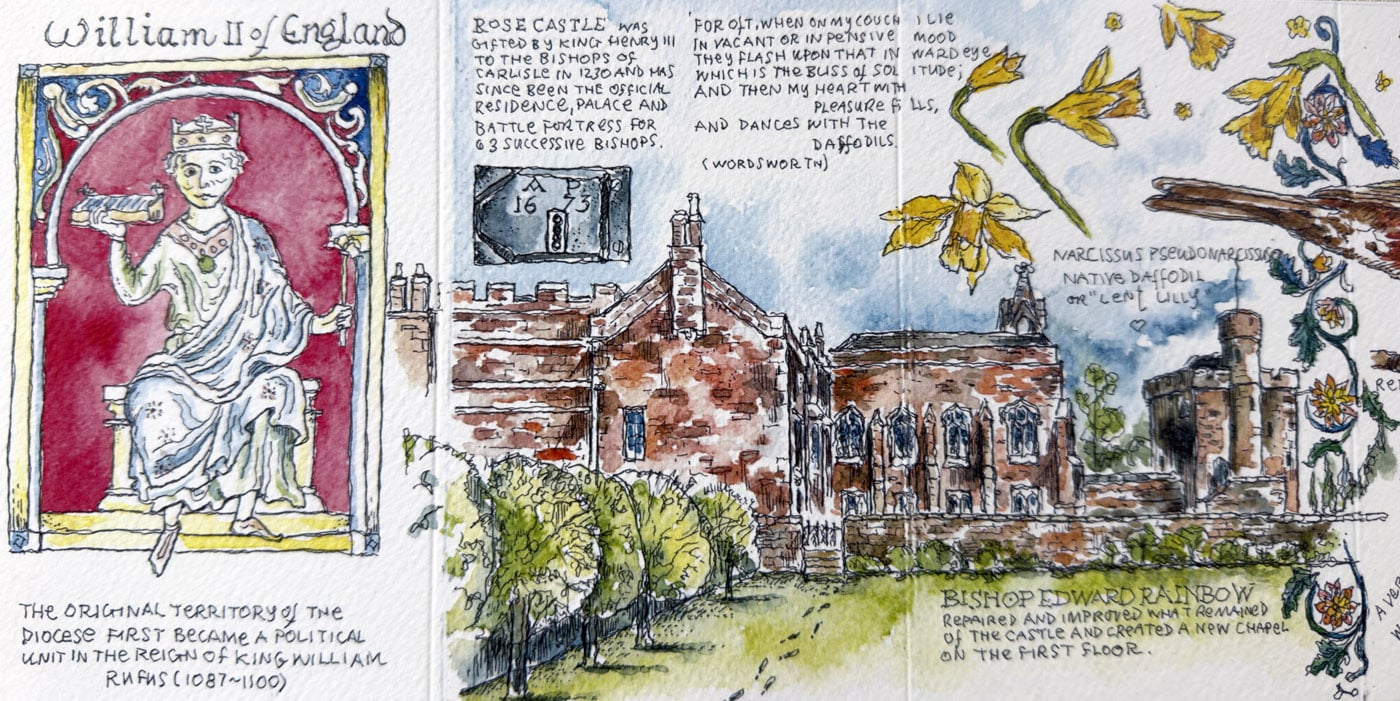 William II of England
THE ORIGINAL TERRITORY of THE
DIOCESE FIRST BECAME A POLITICAL
UNIT IN THE REIGN OF KING WILLIAM
RUFUS (1087~1100)
ROSE CASTLE WAS
GIFTED BY KING HENRY III
TO THE BISHOPS OF
CARLISLE IN 1230 AND HAS
SINCE BEEN THE OFFICIAL
RESIDENCE, PALACE AND
BATTLE FORTRESS FOR
63 SUCCESSIVE BISHOPS.
A P
16 73
'FOR OFT, WHEN ON MY COUCH I LIE
IN VACANT OR IN PENSIVE MOOD
THEY FLASH UPON THAT INWARD eye
WHICH IS THE BLISS of SOLITUDE;
AND THEN MY HEART WITH
PLEASURE FILLS,
AND DANCES WITH THE
DAffODILS.
(WORDSWORTH)
NARCISSUS PSEUDONARCISSUS
NATIVE DAffODIL
OR "LENT LILLY
BISHOP EDWARD RAINBOW
REPAIRED AND IMPROVED WHAT REMAINED
of THE CASTLE AND CREATED A NEW CHAPEL
ON THE FIRST FLOOR.